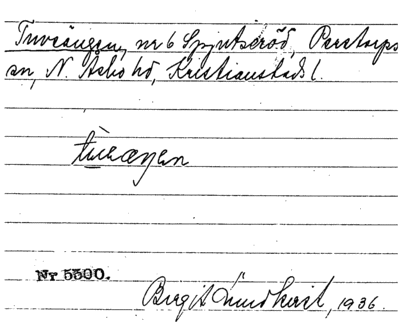 Tuveängen, nr 6 Spjutseröd, Perstorps
sn, N. Åsbo hd, Kristianstads l.
tuvaŋen
Nr 5500.
Birgit Lundkvist, 1936.